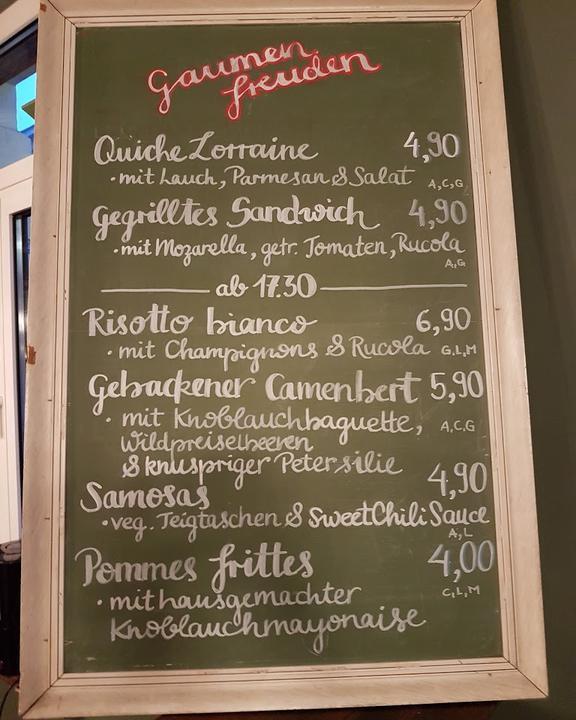 Gaumen
freuden
Quiche Lorraine 4,90
• mit Lauch, Parmesan & Salat A,C,G
Gegrilltes Sandwich 4,90
• mit Mozarella, getr. Tomaten, Rucola
A,G
ab 17.30
Risotto bianco 6,90
• mit Champignons & Rucola G,L,M
Gebackener Camenbert 5,90
• mit Knoblauchbaguette, A,C,G
Wildpreiselbeeren
& knuspriger Petersilie
Samosas 4,90
• veg. Teigtaschen & Sweet Chili Sauce
A,L
Pommes frittes 4,00
• mit hausgemachter C,L,M
Knoblauchmayonaise